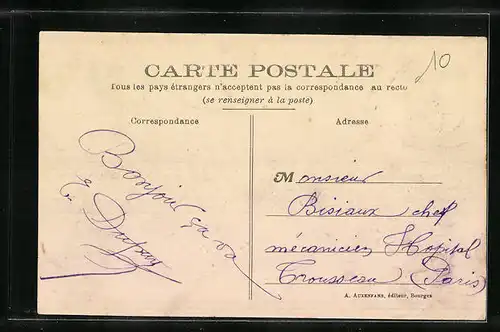 10
CARTE POSTALE
Tous les pays étrangers n'acceptent pas la correspondance au recto
(se renseigner à la poste)
Correspondance
Adresse
Bonjour ça va
Monsieur
Bisiaux chef
mécanicien Hopital
Trousseau (Paris)
A. AUXENFANS, éditeur, Bourges